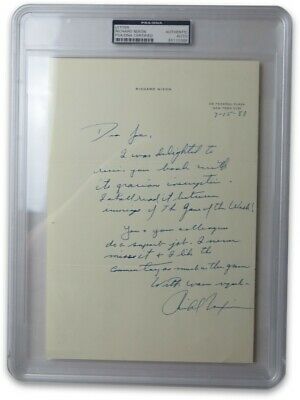 PSA/DNA
LETTER
RICHARD NIXON
PSA/DNA CERTIFIED
AUTHENTIC
AUTO
RICHARD NIXON
26 FEDERAL PLAZA
NEW YORK CITY
Dear Joe,
I was delighted to
receive your book with
its gracious inscription.
I shall read it between
innings of The Game of the Week!
You & your colleagues
do a superb job. I never
miss it & I like the
commentary as much as the game
With warm regards
Richard Nixon